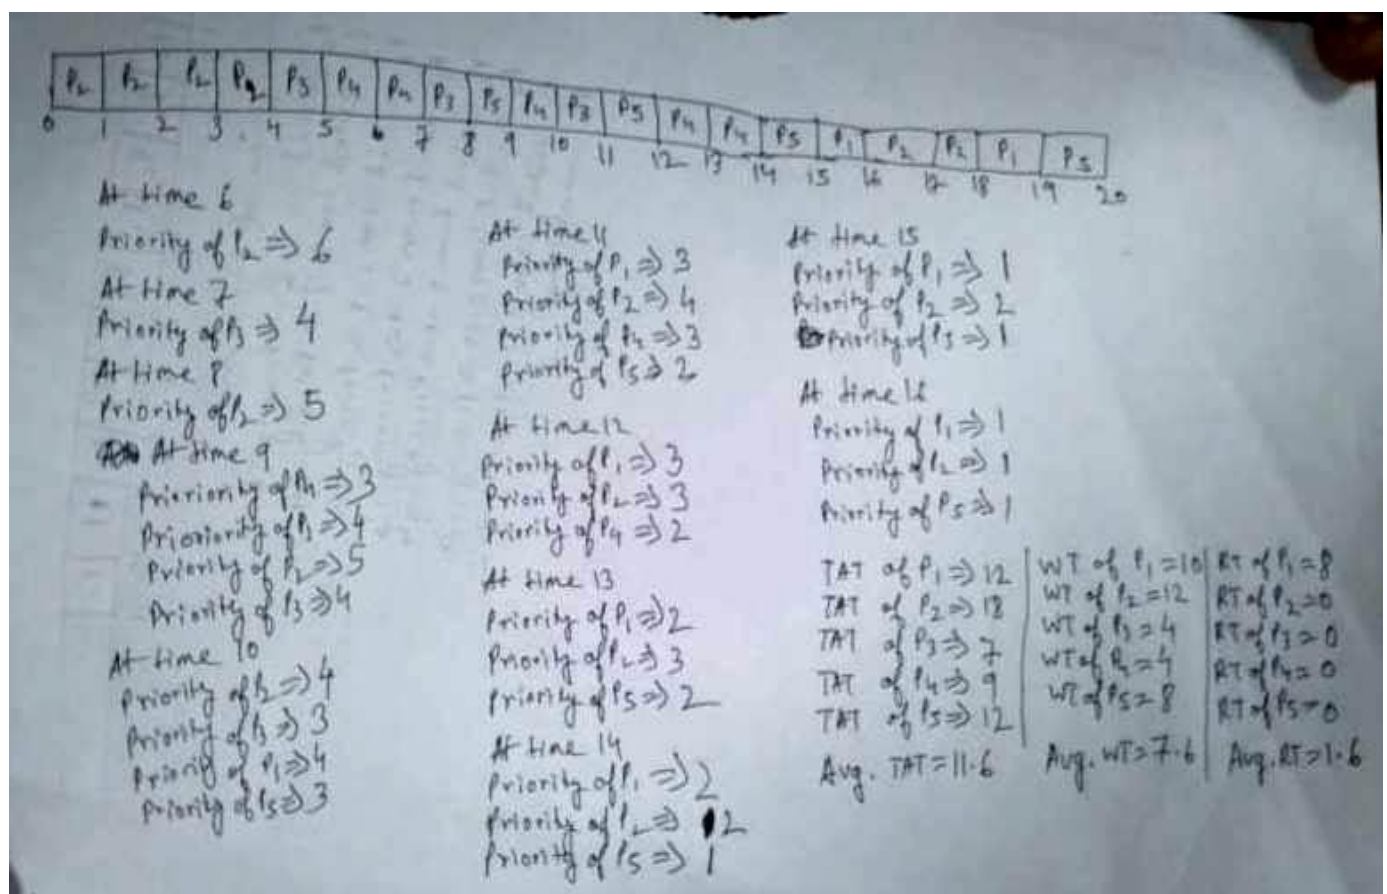 P2 P2 P2 P2 P3 P4 P4 P3 P5 P4 P3 P5 P4 P4 P5 P1 P2 P2 P1 P5
0 1 2 3 4 5 6 7 8 9 10 11 12 13 14 15 16 17 18 19 20
At time 6
Priority of P2 ⇒ 6
At time 7
Priority of P3 ⇒ 4
At time 8
Priority of P2 ⇒ 5
At time 9
Prioriority of P4 ⇒ 3
Prioriority of P1 ⇒ 4
Priority of P2 ⇒ 5
Priority of P3 ⇒ 4
At time 10
Priority of P2 ⇒ 4
Priority of P3 ⇒ 3
Priority of P1 ⇒ 4
Priority of P5 ⇒ 3
At time 11
Priority of P1 ⇒ 3
Priority of P2 ⇒ 4
Priority of P4 ⇒ 3
Priority of P5 ⇒ 2
At time 12
Priority of P1 ⇒ 3
Priority of P2 ⇒ 3
Priority of P4 ⇒ 2
At time 13
Priority of P1 ⇒ 2
Priority of P2 ⇒ 3
Priority of P5 ⇒ 2
At time 14
Priority of P1 ⇒ 2
Priority of P2 ⇒ 2
Priority of P5 ⇒ 1
At time 15
Priority of P1 ⇒ 1
Priority of P2 ⇒ 2
Priority of P5 ⇒ 1
At time 16
Priority of P1 ⇒ 1
Priority of P2 ⇒ 1
Priority of P5 ⇒ 1
TAT of P1 ⇒ 12
TAT of P2 ⇒ 18
TAT of P3 ⇒ 7
TAT of P4 ⇒ 9
TAT of P5 ⇒ 12
Avg. TAT = 11.6
WT of P1 = 10
WT of P2 = 12
WT of P3 = 4
WT of P4 = 4
WT of P5 = 8
Avg. WT = 7.6
RT of P1 = 8
RT of P2 = 0
RT of P3 = 0
RT of P4 = 0
RT of P5 = 0
Avg. RT = 1.6